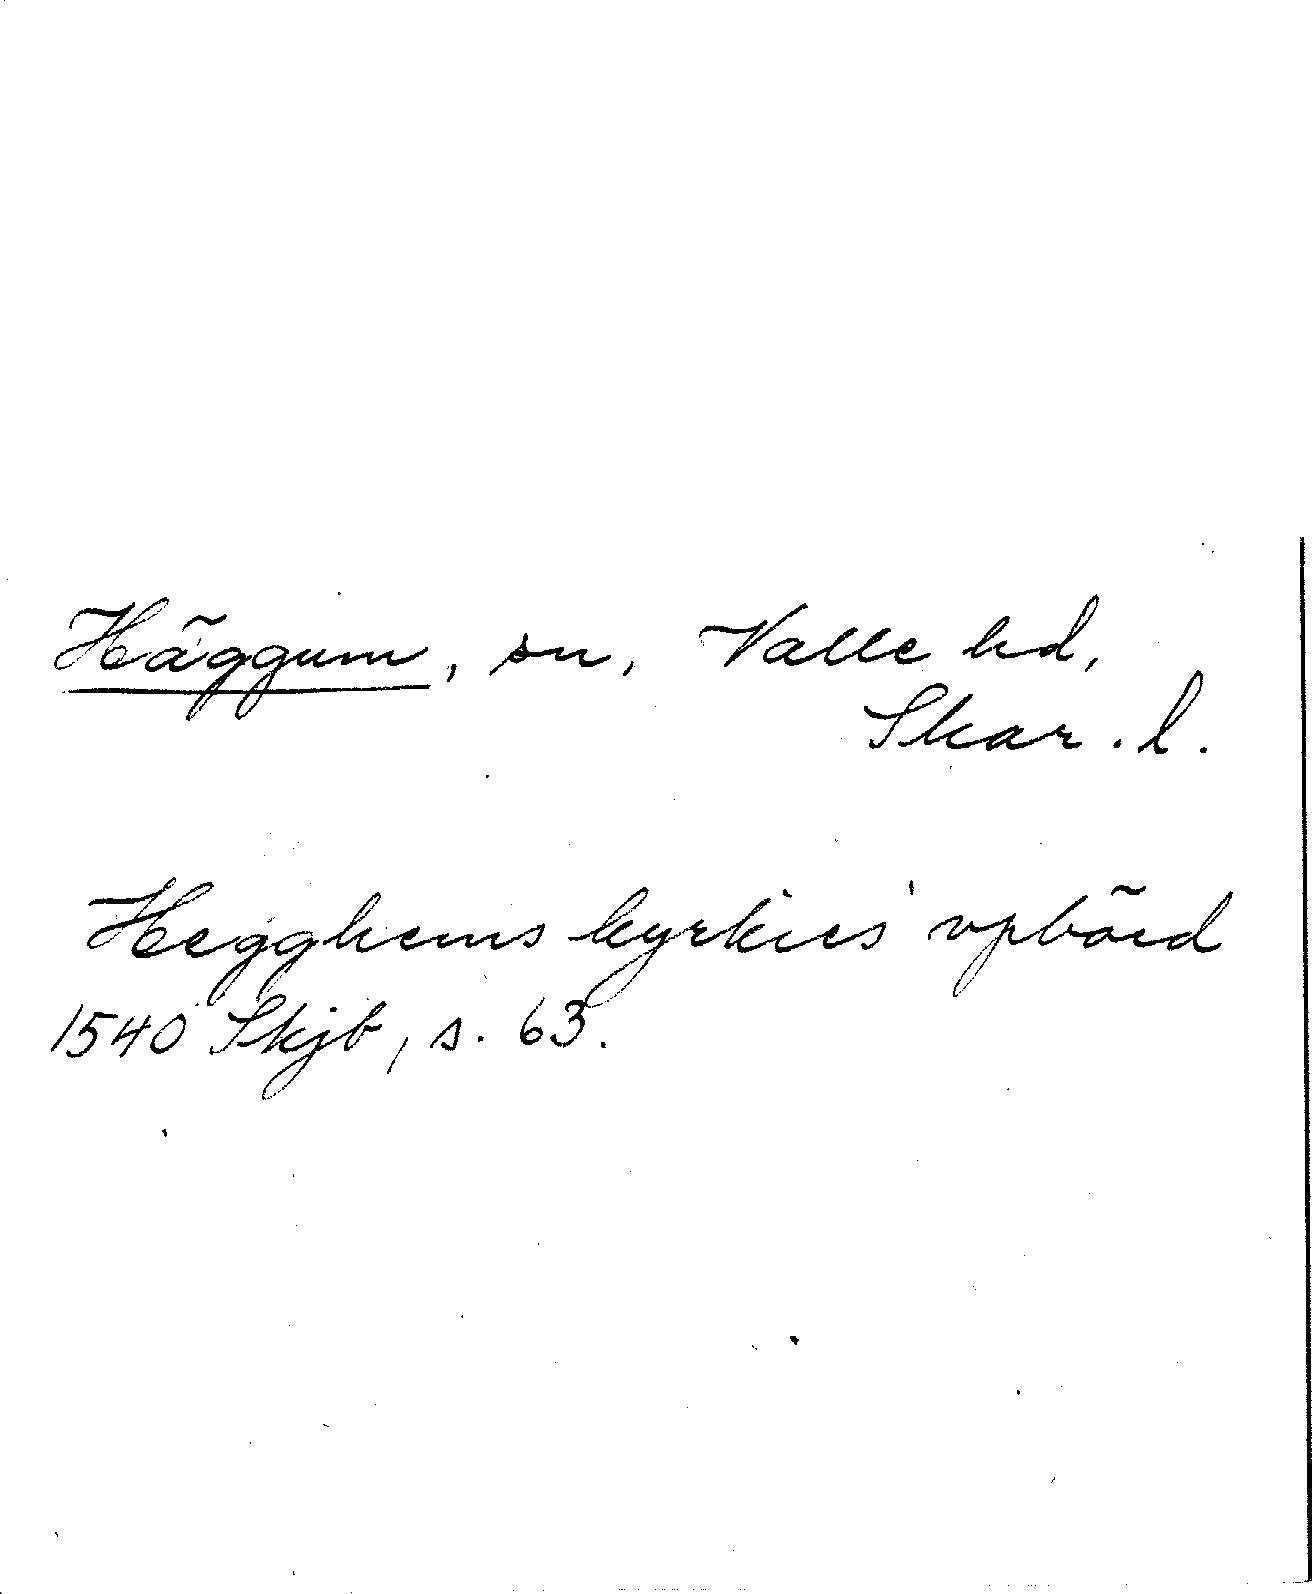 Häggum, sn, Valle hd,
Skar. l.
Hegghems kyrkies vpbörd
1540 Skjb, s. 63.